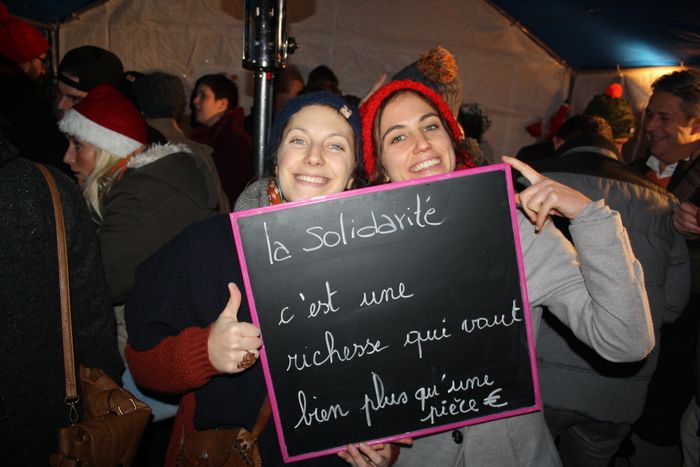 la solidarité
c'est une
richesse qui vaut
bien plus qu'une
pièce €